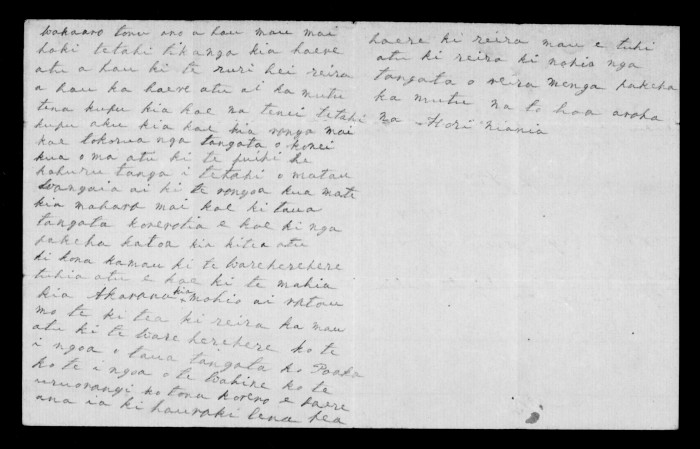 wakaaro tonu ano a hau mau mai
hoki tetahi tikanga kia haere
atu a hau ki te ruri hei reira
a hau ka haere atu ai ka mutu
tena kupu kia koe na tenei tetahi
kupu aku kia koe kia rongo mai
koe tokorua nga tangata o konei
kua oma atu ki te puihi he
kohuru tanga i tetahi o matau
wangaia ai ki te rongoa kua mate
kia maharo mai koe ki taua
tangata korerotia e koe ki nga
pakeha katoa kia kitea atu
ki kona kamau ki te wareherehere
tuhia atu e koe ki te mahia
kia Akarana kia mohio ai ratou
mo te ki tea ki reira ka mau
atu ki te ware herehere ko te
i ngoa o taua tangata ko Paaka
ko te i ngoa o te wahine ko te
uruorangi ko tona korero e haere
ana ia ki hauraki tena pea
haere ki reira mau e tuhi
atu ki reira ki nohia nga
tangata o reira menga pakeha
ka mutu na to hoa aroha
na Hori Niania